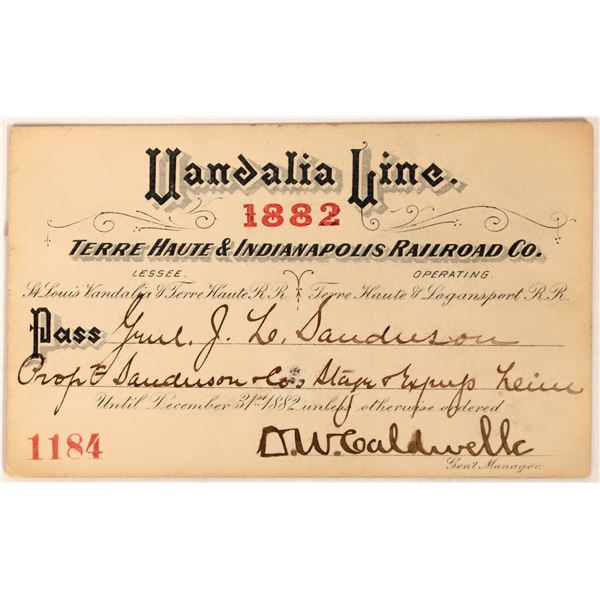 Vandalia Line.
1882
TERRE HAUTE & INDIANAPOLIS RAILROAD CO.
LESSEE. OPERATING.
St Louis Vandalia & Terre Haute R.R. Terre Haute & Logansport R.R.
Pass Genl. J. L. Sanderson
Prop Sanderson & Co's Stage & Express Line
Until December 31st 1882 unless otherwise ordered
1184 D. W. Caldwell
Gen'l Manager.